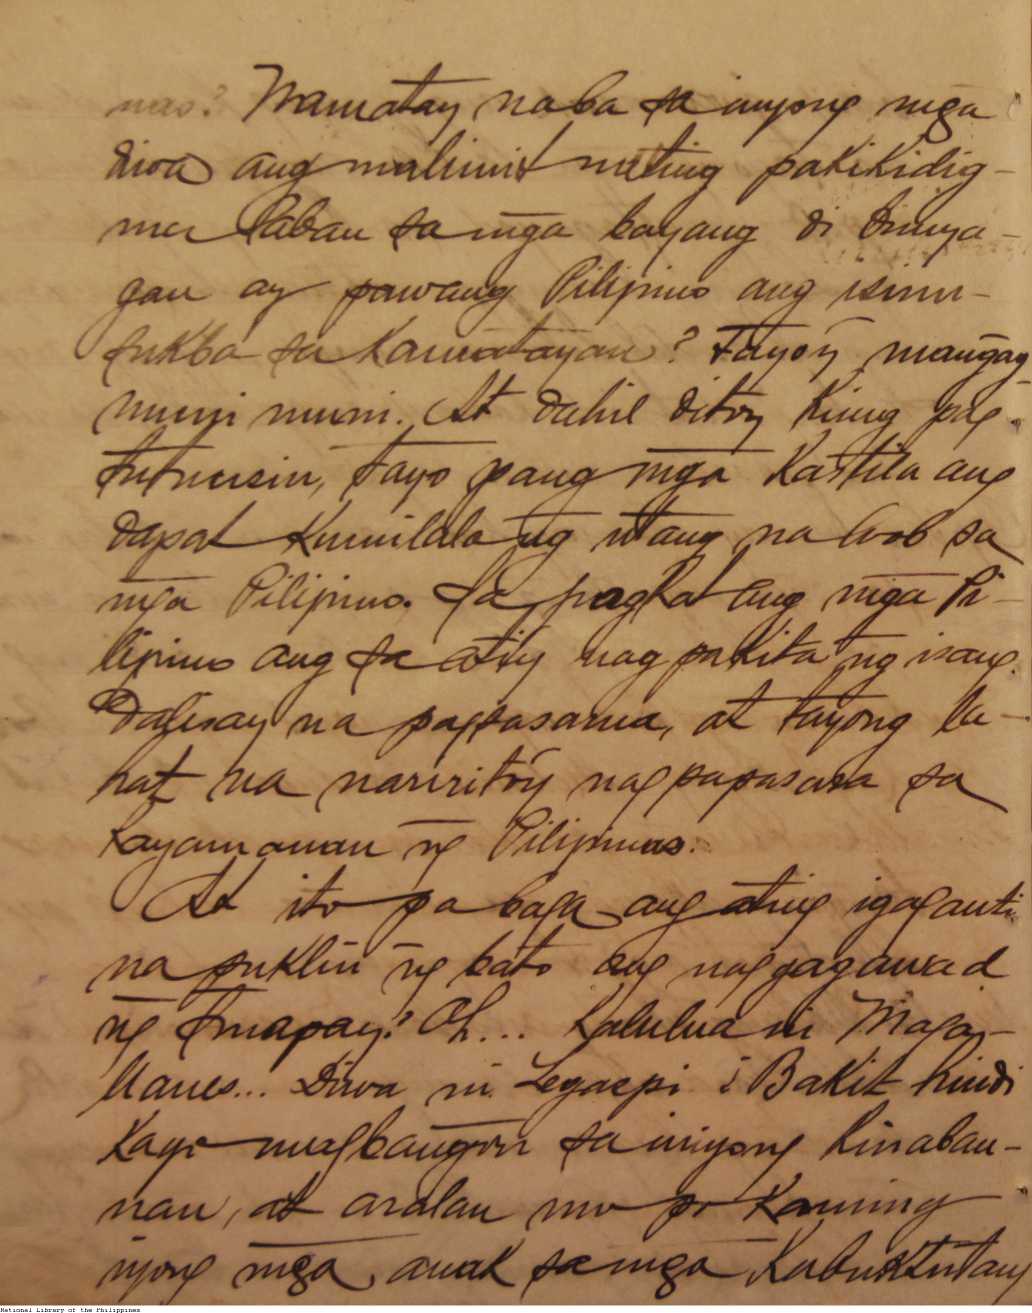 nas? Namatay na ba sa inyong mga
diwa ang malimit nating pakikidig-
ma laban sa mga bayang di binya-
gan ay pawang Pilipino ang isinu-
sukba sa kamatayan? Tayo'y mangag
muni muni. At dahil dito'y kung pag
tutuusin, tayo pang mga Kastila ang
dapat kumilala ng utang na loob sa
mga Pilipino. Sa pagkat ang mga Pi-
lipino ang sa ati'y nag pakita ng isang
Dalisay na pagsasama, at tayong la-
hat na naririto'y nagpapasasa sa
kayamanan ng Pilipinas.
At ito pa baga ang ating igaganti
na suklian ng bato ang nag gagawad
ng tinapay? Oh... Kaluluwa ni Maga-
llanes... Diwa ni Legaspi ¿Bakit hindi
kayo magbangon sa inyong kinabau-
nan, at aralan mo po kaming
inyong mga anak sa mga kabuktutang
National Library of the Philippines